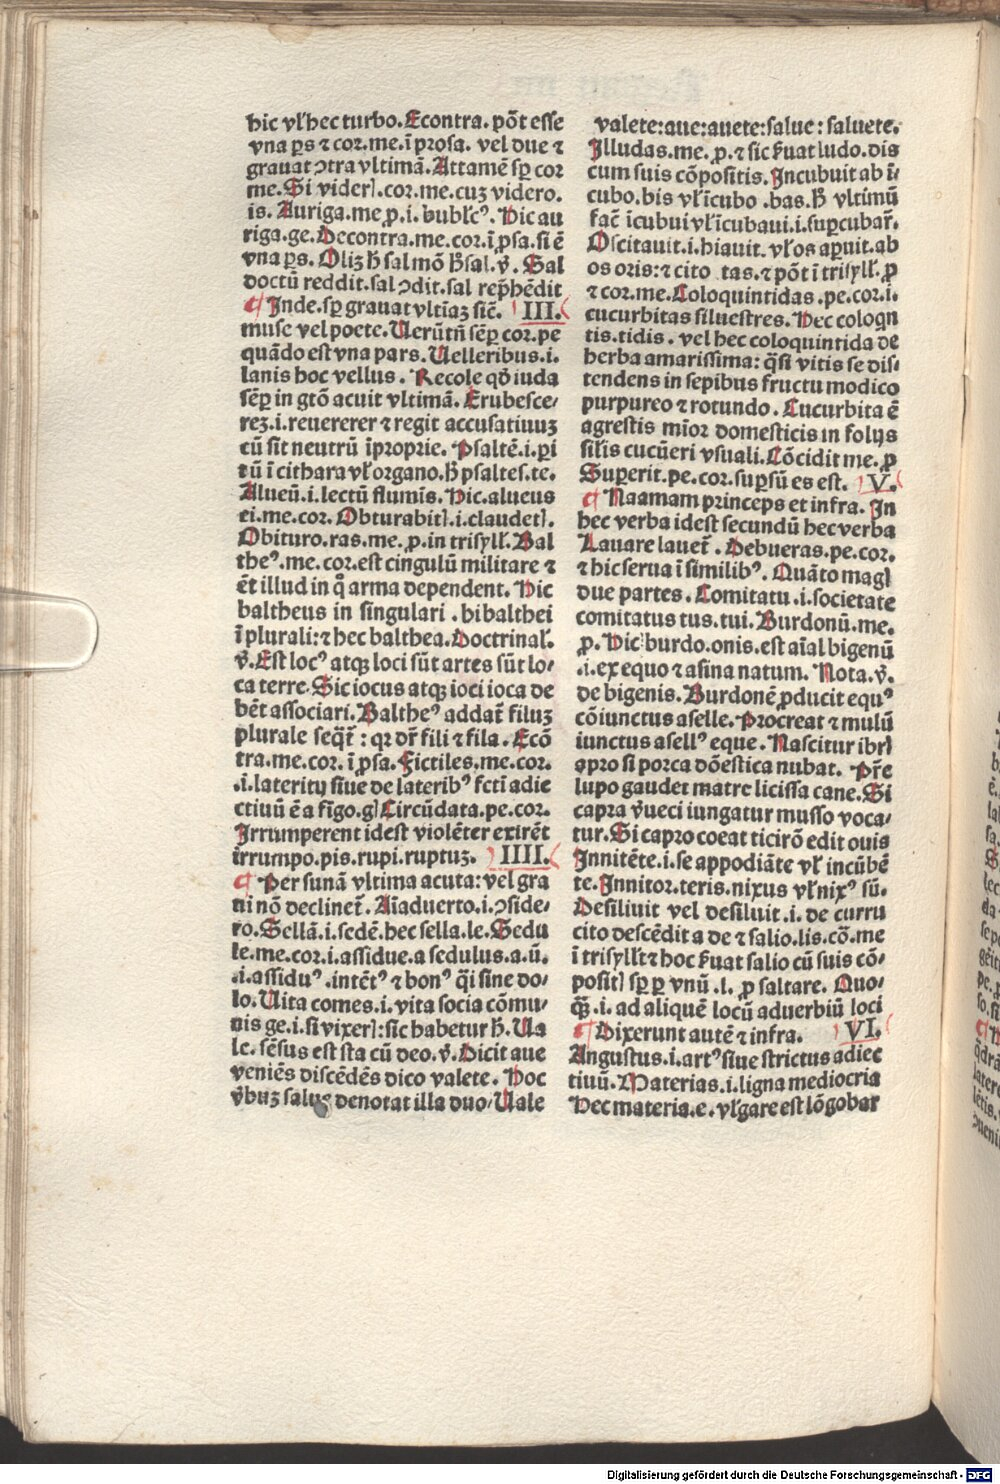 hic vl̕ hec turbo. Econtra. põt esse
vna ꝑs ⁊ cor. me. ĩ prosa. vel due ⁊
grauat ↄtra vltimã. Attamẽ sꝑ cor
me. Si viderꝭ. cor. me. cuȝ videro.
is. Auriga. me ꝓ. i. bubl̕cꝰ. Hic au
riga. ge. Decontra. me. cor. ĩ ꝓsa. si ẽ
vna ꝑs. Oliȝ h̃ sal mõ h̃ sal. v̄. Sal
doctũ reddit. sal ↄdit. sal rep̃hẽdit
¶ Inde. sꝑ grauat vltĩaȝ sic̃. III.
muse vel poete. Uerũtñ sẽꝑ cor. pe
quãdo est vna pars. Uelleribus. i.
lanis hoc vellus. Recole qð iuda
sẽꝑ in gtõ acuit vltimã. Erubesce⸗
reȝ. i. reuererer ⁊ regit accusatiuuȝ
cũ sit neutrũ ĩproprie. Psaltẽ. i. ꝑi
tũ ĩ cithara vl̕ organo. h̃ psaltes. te.
Alueũ. i. lectũ flumĩs. Hic. alueus
ei. me. cor. Obturabitꝭ. i. claudetꝭ.
Obituro. ras. me. ꝓ. in trisyll̕. Bal
theꝰ. me. cor. est cingulũ militare ⁊
ẽt illud in q̃ arma dependent. Hic
baltheus in singulari. hi balthei
ĩ plurali: ⁊ hec balthea. Doctrinal̕.
v̄. Est locꝰ atqꝫ loci sũt artes sũt lo⸗
ca terre. Sic iocus atqꝫ ioci ioca de
bẽt associari. Baltheꝰ addat̃ filuȝ
plurale seq̃t̃: qꝛ dr̃ fili ⁊ fila. Ecõ
tra. me. cor. ĩ ꝓsa. Fictiles. me. cor.
.i. lateritij siue de lateribꝰ fcti adie
ctiuũ ẽ a fĩgo. gꝭ Circũdata. pe. cor.
Irrumperent idest violẽter exirẽt
irrumpo. pis. rupi. ruptuȝ. IIII.
¶ Per sunã vltima acuta: vel gra
ui nõ declinet̃. Aĩaduerto. i. ↄside⸗
ro. Sellã. i. sedẽ. hec sella. le. Sedu
le. me. cor. i. assidue. a sedulus. a. ũ.
.i. assiduꝰ. intẽtꝰ ⁊ bonꝰ q̃i sine do⸗
lo. Uita comes. i. vita socia cõmu⸗
nis ge. i. si vixerꝭ: sic habetur h̃. Ua
le. sẽsus est sta cũ deo. v̄. Dicit aue
veniẽs discẽdẽs dico valete. Hoc
v̄buȝ salue denotat illa duo. Uale
valete: aue: auete: salue: saluete.
Illudas. me. ꝓ. ⁊ sic f̃uat ludo. dis
cum suis cõpositis. Incubuit ab ĩ⸗
cubo. bis vl̕ icubo. bas. h̃ vltimũ
fac̃ icubui vl̕ icubaui. i. suꝑcubar̃.
Oscitauit. i. hiauit. vl̕ os aꝑuit. ab
os oris: ⁊ cito tas. ⁊ põt ĩ trisyll̕. ꝓ
⁊ cor. me. Coloquintidas. pe. cor. i.
cucurbitas siluestres. Hec coloqn
tis. tidis. vel hec coloquintida de
herba amarissima: q̃si vitis se dis⸗
tendens in sepibus fructu modico
purpureo ⁊ rotundo. Cucurbita ẽ
agrestis mĩor domesticis in folijs
sil̕is cucũeri vsuali. Cõcidit me. ꝓ
Suꝑerit. pe. cor. suꝑsũ es est. V.
¶ Naamam princeps et infra. In
hec verba idest secundũ hec verba
Lauare lauet̃. Debueras. pe. cor.
⁊ hic serua ĩ similibꝰ. Quãto magꝭ
due partes. Comitatu. i. societate
comitatus tus. tui. Burdonũ. me.
ꝓ. Hic burdo. onis. est aĩal bigenũ
.i. ex equo ⁊ asina natum. Nota. v̄.
de bigenis. Burdonẽ ꝓducit equꝰ
cõiunctus aselle. Procreat ⁊ mulũ
iunctus asellꝰ eque. Nascitur ibrꝭ
apro si porca dõestica nubat. Pr̃e
lupo gaudet matre licissa cane. Si
capra v̄ueci iungatur musso voca⸗
tur. Si capro coeat ticirõ edit ouis
Innitẽte. i. se appodiãte vl̕ incũbẽ
te. Innitor. teris. nixus vl̕ nixꝰ sũ.
Desiliuit vel desiluit. i. de curru
cito descẽdit a de ⁊ salio. lis. cõ. me
ĩ trisyll̕ ⁊ hoc f̃uat salio cũ suis cõ⸗
positꝭ sꝑ ꝑ vnũ .l. ꝓ saltare. Quo⸗
qꝫ. i. ad aliquẽ locũ aduerbiũ loci
¶ Dixerunt autẽ ⁊ infra. VI.
Angustus. i. artꝰ siue strictus adiec
tiuũ. Materias. i. ligna mediocria
Hec materia. e. vl̕gare est lõgobar